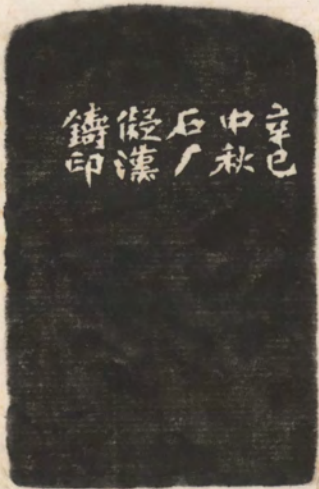 辛巳
中秋
石厂
儗漢
鑄印